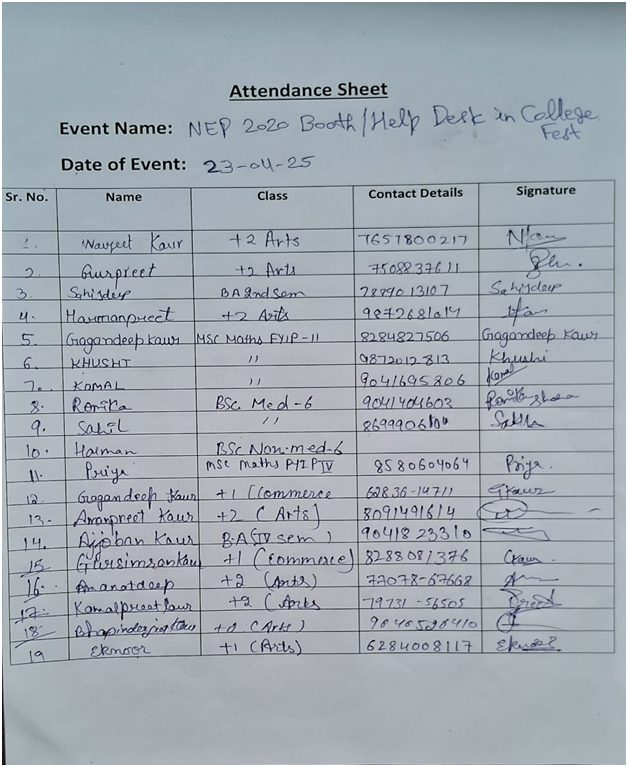 Attendance Sheet
Event Name: NEP 2020 Booth/Help Desk in College
Fest
Date of Event: 23-04-25
Sr. No. Name Class Contact Details Signature
1. Navjeet Kaur +2 Arts 7657800217
2. Gurpreet +2 Arts 7508837611
3. Sahijdeep BA 2nd sem 7889013107 Sahijdeep
4. Harmanpreet +2 Arts
5. Gagandeep Kaur MSC Maths FYIP-II 8284827506 Gagandeep Kaur
6. KHUSHI // 9872012813 Khushi
7. KOMAL // 9041695806 Komal
8. Ronika BSc. Med-6 9041404603
9. Sahil // Sahil
10. Haiman BSc Non-med-6
11. Priya MSC Maths FYIP IV 8580604064 Priya.
12. Gagandeep Kaur +1 (Commerce 62836-14711 Gkaur
13. Amanpreet Kaur +2 (Arts) 8091491614
14. Ajoban Kaur B.A (IV sem) 9041823310
15. Gursimran kaur +1 (Commerce) 8288081376
16. Amanatdeep +2 (Arts) 77078-67668
17. Kamalpreet Kaur +2 (Arts 79731-56505 Preet
18. (Arts)
19 Eknoor +1 (Arts) 6284008117 Eknoor